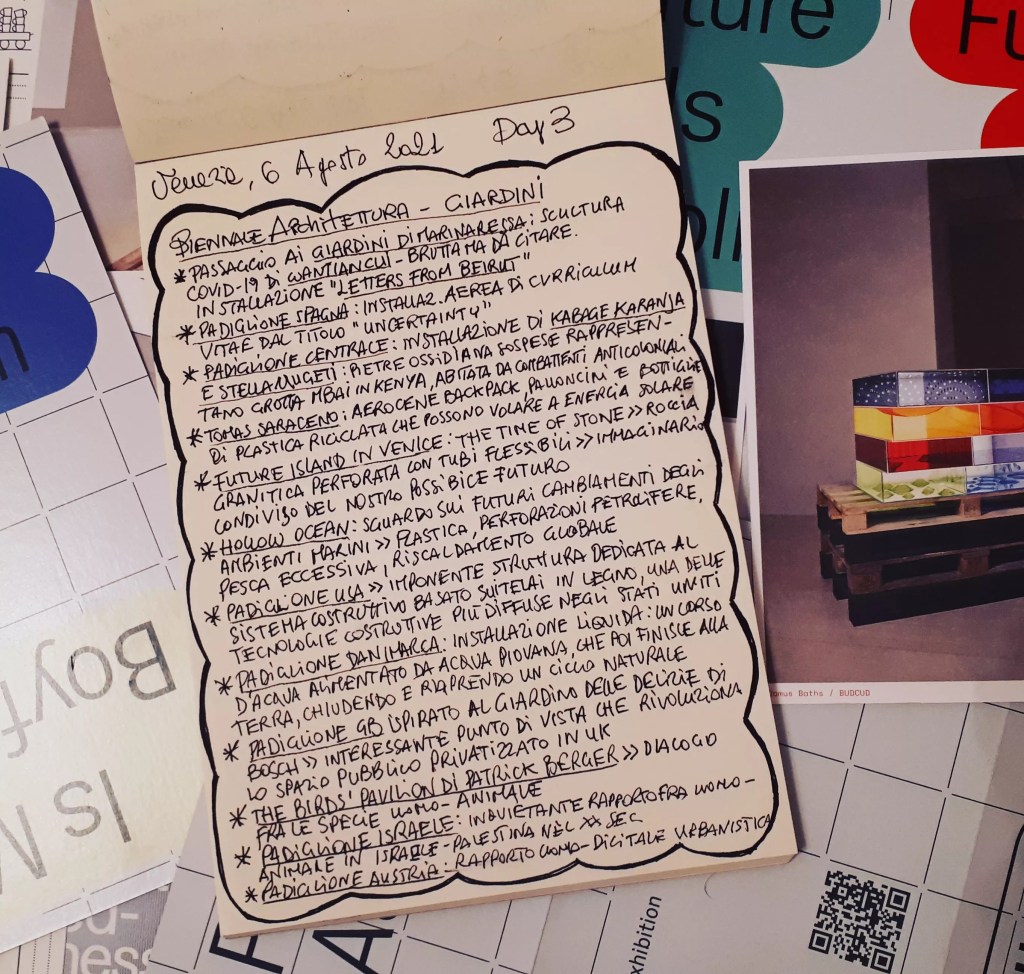 Venezia, 6 Agosto 2021 Day 3
BIENNALE ARCHITETTURA - GIARDINI
* PASSAGGIO AI GIARDINI DI MARINARESSA: SCULTURA
COVID-19 DI WANTIANCUI - BRUTTA MA DA CITARE.
INSTALLAZIONE "LETTERS FROM BEIRUT"
* PADIGLIONE SPAGNA: INSTALLAZ. AEREA DI CURRICULUM
VITAE DAL TITOLO "UNCERTAINTY"
* PADIGLIONE CENTRALE: INSTALLAZIONE DI KABAGE KARANJA
E STELLA MUGETI: PIETRE OSSIDIANA SOSPESE RAPPRESEN-
TANO GROTTA MBAI IN KENYA, ABITATA DA COMBATTENTI ANTICOLONIALI
* TOMAS SARACENO: AEROCENE BACKPACK, PALLONCINI E BOTTIGLIE
DI PLASTICA RICICLATA CHE POSSONO VOLARE A ENERGIA SOLARE
* FUTURE ISLAND IN VENICE: THE TIME OF STONE >> ROCCIA
GRANITICA PERFORATA CON TUBI FLESSIBILI >> IMMAGINARIO
CONDIVISO DEL NOSTRO POSSIBILE FUTURO
* HOLLOW OCEAN: SGUARDO SUI FUTURI CAMBIAMENTI DEGLI
AMBIENTI MARINI >> PLASTICA, PERFORAZIONI PETROLIFERE,
PESCA ECCESSIVA, RISCALDAMENTO GLOBALE
* PADIGLIONE USA >> IMPONENTE STRUTTURA DEDICATA AL
SISTEMA COSTRUTTIVO BASATO SUI TELAI IN LEGNO, UNA DELLE
TECNOLOGIE COSTRUTTIVE PIÙ DIFFUSE NEGLI STATI UNITI
* PADIGLIONE DANIMARCA: INSTALLAZIONE LIQUIDA: UN CORSO
D'ACQUA ALIMENTATO DA ACQUA PIOVANA, CHE POI FINISCE ALLA
TERRA, CHIUDENDO E RIAPRENDO UN CICLO NATURALE
* PADIGLIONE GB ISPIRATO AL GIARDINO DELLE DELIZIE DI
BOSCH >> INTERESSANTE PUNTO DI VISTA CHE RIVOLUZIONA
LO SPAZIO PUBBLICO PRIVATIZZATO IN UK
* THE BIRDS' PAVILION DI PATRICK BERGER >> DIALOGO
FRA LE SPECIE UOMO-ANIMALE
* PADIGLIONE ISRAELE: INQUIETANTE RAPPORTO FRA UOMO-
ANIMALE IN ISRAELE-PALESTINA NEL XX SEC
* PADIGLIONE AUSTRIA: RAPPORTO UOMO-DIGITALE URBANISTICA
ture
Fu
s
oll
m
Boyf
Is M
ness
xhibition
Domus Baths / BUDCUD